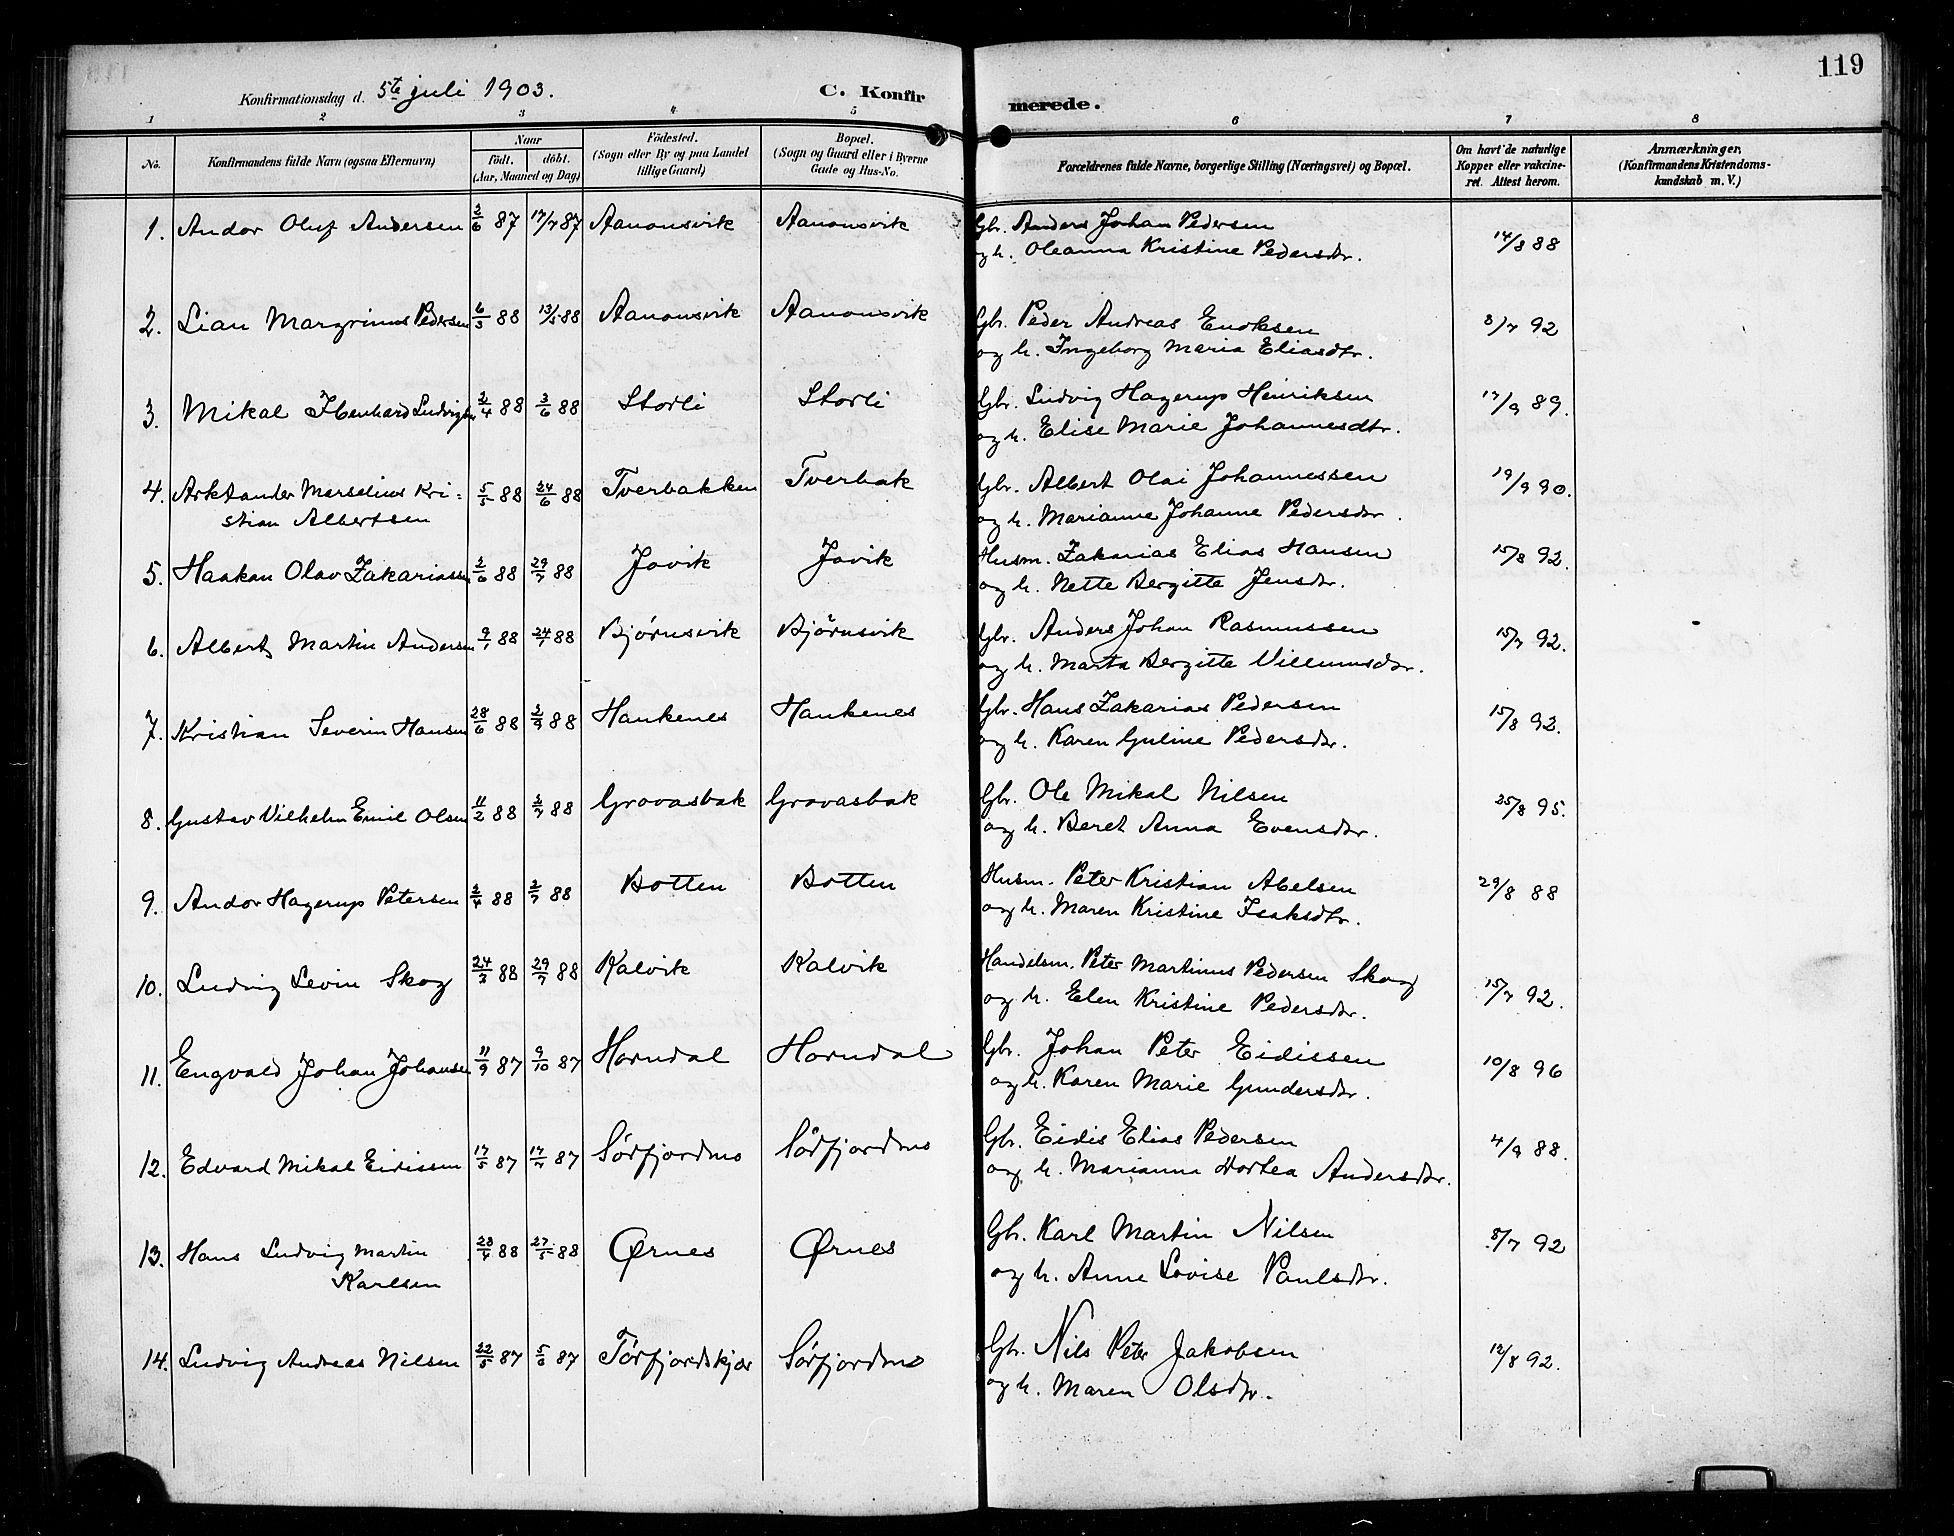 119
Konfirmationsdag d. 5te juli 1903.
C. Konfirmerede.
1 2 3 4 5 6 7 8
No.
Konfirmandens fulde Navn (ogsaa Efternavn)
Naar
födt. döbt.
(Aar, Maaned og Dag)
Födested.
(Sogn eller By og paa Landet
tillige Gaard)
Bopæl.
(Sogn og Gaard eller i Byerne
Gade og Hus-No.
Forældrenes fulde Navne, borgerlige Stilling (Næringsvei) og Bopæl.
Om havt de naturlige
Kopper eller vakcine-
ret. Attest herom.
Anmærkninger,
(Konfirmandens Kristendoms-
kundskab m. V.)
1. Andor Oluf Andersen 2/6 87 17/7 87 Aanonsvik Aanonsvik Gbr. Anders Johan Pedersen 14/8 88
og h. Oleanna Kristine Pedersdtr.
2. Lian Margrinus Pedersen 6/3 88 13/5 88 Aanonsvik Aanonsvik Gbr. Peder Andreas Enoksen 8/7 92
og h. Ingeborg Maria Eliasdtr.
3. Mikal Ibenhard Ludvigsen 2/4 88 3/6 88 Storli Storli Gbr. Ludvig Hagerup Henriksen 17/9 89.
og h. Elise Marie Johannesdtr.
4. Arktander Marselius Kri- 5/5 88 24/6 88 Tverbakken Tverbak Gbr. Albert Olai Johannessen 19/9 90.
stian Albertsen og h. Marianne Johanne Pedersdtr.
5. Haakan Olav Zakariassen 2/6 88 29/7 88 Jovik Jovik Husm. Zakarias Elias Hansen 15/8 92.
og h. Nette Bergitte Jensdtr.
6. Albert Martin Andersen 9/1 88 24/7 88 Bjørnsvik Bjørnsvik Gbr. Anders Johan Rasmussen 15/7 92.
og h. Marta Bergitte Villumsdtr.
7. Kristian Severin Hansen 28/6 88 2/9 88 Haukenes Haukenes Gbr. Hans Zakarias Pedersen 15/8 92.
og h. Karen Guline Pedersdtr.
8. Gustav Vilhelm Emil Olsen 11/2 88 2/7 88 Grovasbak Grovasbak Gbr. Ole Mikal Nilsen 25/8 95.
og h. Beret Anna Evensdtr.
9. Andor Hagerup Petersen 2/4 88 2/7 88 Botten Botten Husm. Peter Kristian Abelsen 29/8 88
og h. Maren Kristine Isaksdtr.
10. Ludvig Levin Skog 24/3 88 29/7 88 Kalvik Kalvik Handelsm. Peter Martinus Pedersen Skog 15/7 92.
og h. Elen Kristine Pedersdtr.
11. Engvald Johan Johansen 11/9 87 9/10 87 Horndal Horndal Gbr. Johan Peter Eidissen 10/8 96
og h. Karen Marie Gundersdtr.
12. Edvard Mikal Eidissen 17/5 87 17/7 87 Sørfjordmo Sørfjordmo Gbr. Eidis Elias Pedersen 4/9 88.
og h. Marianna Dortea Andersdtr.
13. Hans Ludvig Martin 23/4 88 27/5 88 Ørnes Ørnes Gbr. Karl Martin Nilsen 8/7 92
Karlsen og h. Anne Lovise Paulsdtr.
14. Ludvig Andreas Nilsen 22/5 87 5/6 87 Tørfjordskjær Sørfjordmo Gbr. Nils Peter Jakobsen 12/8 92.
og h. Maren Olsdtr.